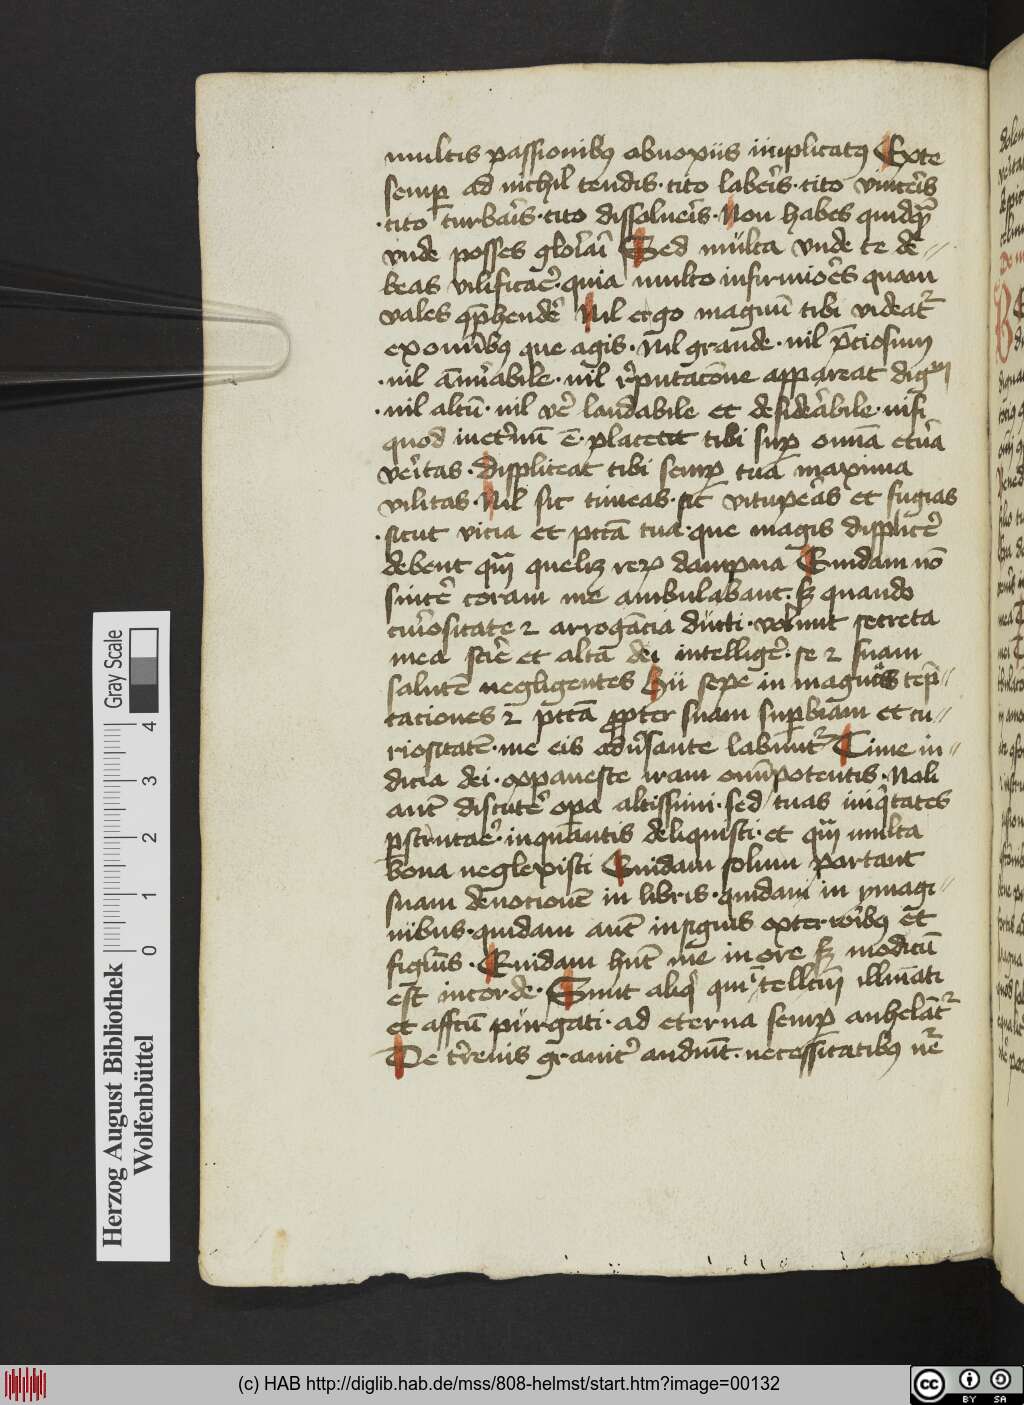 multis passionibꝯ obnoxiis implicatꝯ Exte
semꝑ ad nichil tendis · cito laberis · cito vinceris
· cito turbaris · cito dissolueris · Non habes quidqᷓ
vnde posses gloriari Sed multa vnde te de⸗
beas vilificare · quia multo infirmiores quam
vales ꝯprehendere Nil ergo magnū tibi videatᷣ
ex omībꝯ que agis · Nil grande · nil p̄ciosum
· nil āmirabile · nil reputacōne appareat dignū
· nil altū · nil ver̄ laudabile et desiderabile · nisi
quod in eternū ē · placeat tibi suꝑ omīa eterna
veritas · displiceat tibi semꝑ tua maxima
vilitas · Nil sic timeas · sic vituperas et fugias
· sicut vicia et pctā tua · que magis displicer̄
debent qᷓ quelibꝫ reꝝ dampna Quidam nō
sincer̄ coram me ambulabant · sꝫ quando
curiositate ⁊ arrogācia ducti · volunt secreta
mea scire et alta dei intelligere · se ⁊ suam
salutē negligentes Hii sepe in magnas tēp⸗
taciones ⁊ pctā ꝓpter suam suꝑbiam et cu⸗
riositatē · me eis adūsante labuntᷣ Time iu⸗
dicia dei · expauesce iram omīpotentis · Noli
autē discutere opa altissimi · sed tuas iniqͥtates
ꝑscrutare · in quantis deliquisti · et qᷓ multa
bona neglexisti Quidam solum portant
suam deuotionē in libris · quidam in ymagi⸗
nibus · quidam autē in signis exterioribꝯ et
figuris · Quidam hn̄t me in ore sꝫ modicū
est in corde · Sunt aliqͥ qui ītellcū illuīati
et affcū purgati · ad eterna semꝑ anhelātᷣ
De terrenis grauiter audiūt · necessitatibꝯ nē
Herzog August Bibliothek
Wolfenbüttel
Gray Scale
0 1 2 3 4
(c) HAB http://diglib.hab.de/mss/808-helmst/start.htm?image=00132
cc BY SA